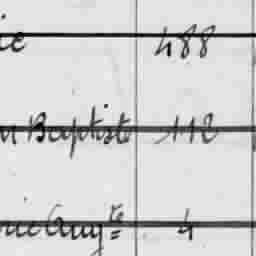 ie 488
n Baptiste 112
rie Aug.te 4